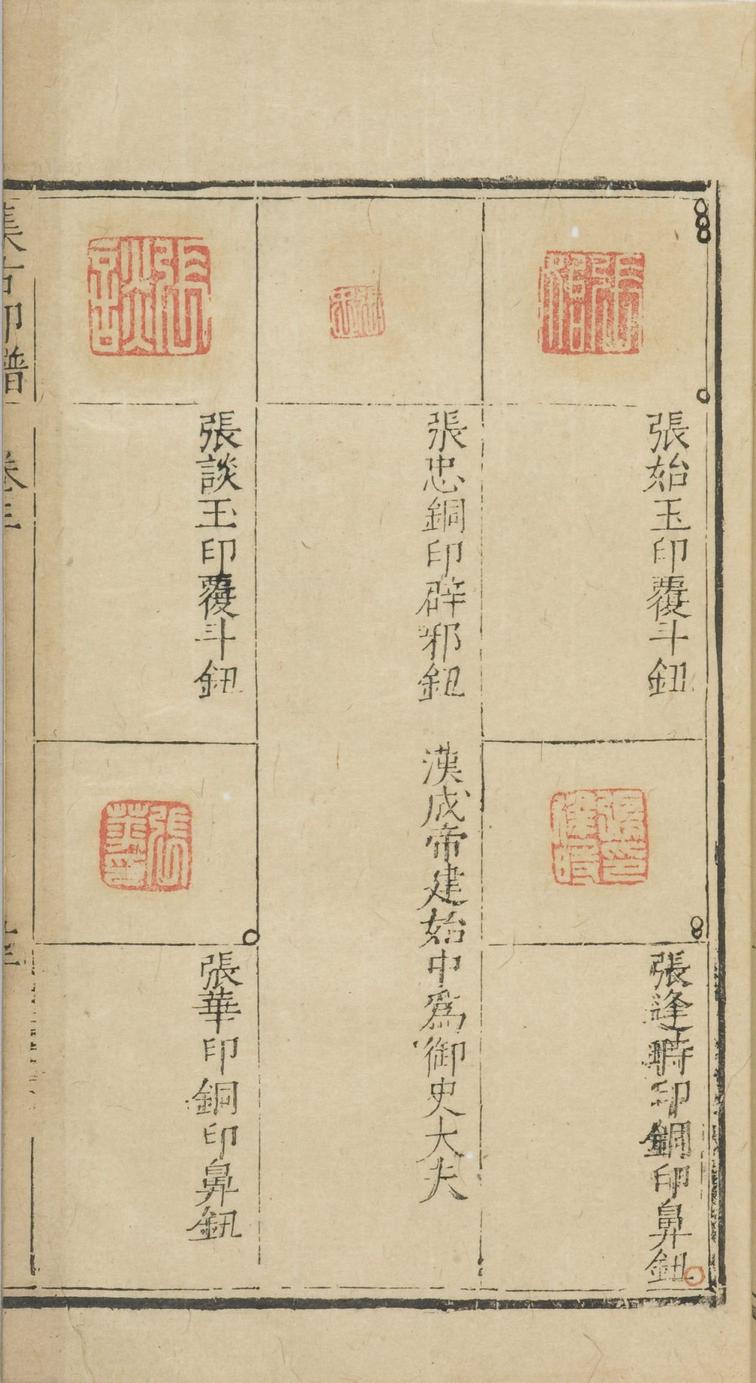 張始玉印覆斗鈕
張逢時印銅印鼻鈕
張忠銅印辟邪鈕
漢成帝建始中爲御史大夫
張談玉印覆斗鈕
張華印銅印鼻鈕
集古印譜
卷三